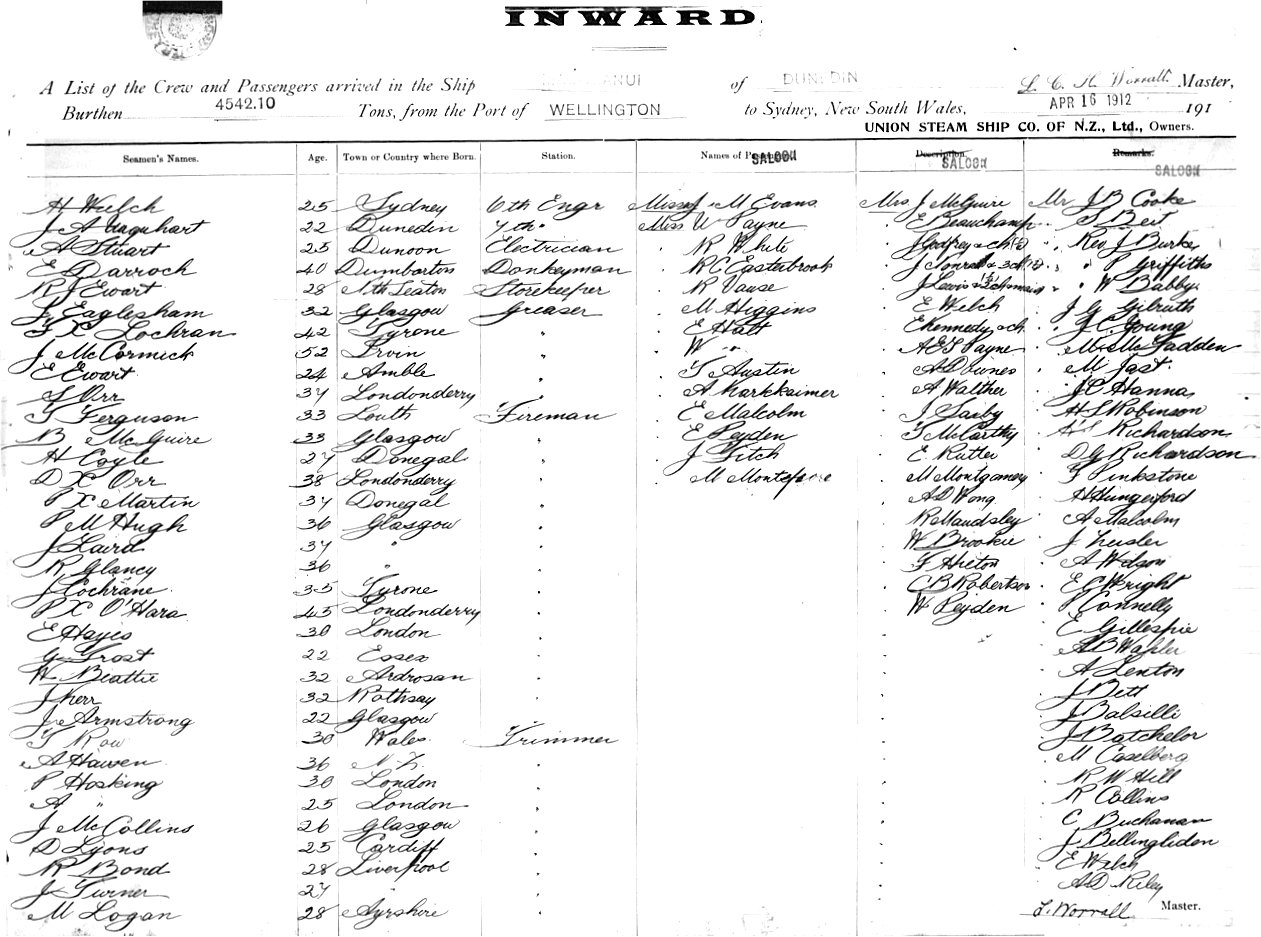 INWARD.
A List of the Crew and Passengers arrived in the Ship NUI of DUNEDIN L. C. H. Worrall Master,
Burthen 4542.10 Tons, from the Port of WELLINGTON to Sydney, New South Wales, APR 16 1912 191
UNION STEAM SHIP CO. OF N.Z., Ltd., Owners.
Seamen's Names. Age. Town or Country where Born. Station. Names of SALOON Description. SALOON Remarks. SALOON
H Welch 25 Sydney 6th Engr Misses J & M Evans Mrs J McGuire Mr J B Cooke
J A Urquhart 22 Dunedin 7th " Miss W Payne " E Beauchamp " S Beit
A Stuart 25 Dunoon Electrician " R White " J Godfrey & ch (2) " Rev J Burke
E Darroch 40 Dumbarton Donkeyman " R C Easterbrook " J & 3 ch " " P Griffiths
R J Ewart 28 Nth Seaton Storekeeper " R Vause " J Lewis " " W Babby
J Eaglesham 32 Glasgow Greaser " M Higgins " E Welch " J G Gilruth
T X Lochran 42 Tyrone " " E Hatt " E Kennedy & ch " J C Young
J McCormick 52 Irvin " " W " " A E S Payne " M McFadden
E Ewart 24 Amble " " T Austin " A Downes " M Jast
S Orr 37 Londonderry " " A Markkaimer " A Walther " J P Hanna
T Ferguson 33 Louth Fireman " E Malcolm " J Saxby " H S Robinson
B McGuire 33 Glasgow " " E Peyden " T McCarthy " H S Richardson
H Coyle 27 Donegal " " J Fitch " E Rutter " D G Richardson
D X Orr 38 Londonderry " " M Montefiore " M Montgomery " F Pinkstone
P X Martin 37 Donegal " " A D Wong " H Hungerford
P McHugh 36 Glasgow " " R Maudsley " A Malcolm
J Laird 37 " " " W Brookie " J
R Glancy 36 " " " F Hieton " A Wilson
J Cochrane 35 Tyrone " " C B Robertson " E G Wright
P X O'Hara 45 Londonderry " " W Peyden " P Connelly
E Hayes 30 London " " E Gillespie
G Frost 22 Essex " " A B Wahler
W Beattie 32 Ardrosan " " A Lenton
J Kerr 32 Rothsay " " J Bett
J Armstrong 22 Glasgow " " J Balsilli
T Row 30 Wales Trimmer " J Batchelor
A Hawen 36 N.Z. " " M Caselberg
P Hosking 30 London " " R W Hill
A " 25 London " " R Collins
J McCollins 26 Glasgow " " C Buchanan
D Lyons 25 Cardiff " " J Bellinglidon
R Bond 28 Liverpool " " E Welch
J Turner 27 " " " A D Riley
M Logan 28 Ayrshire " L. Worrall Master.